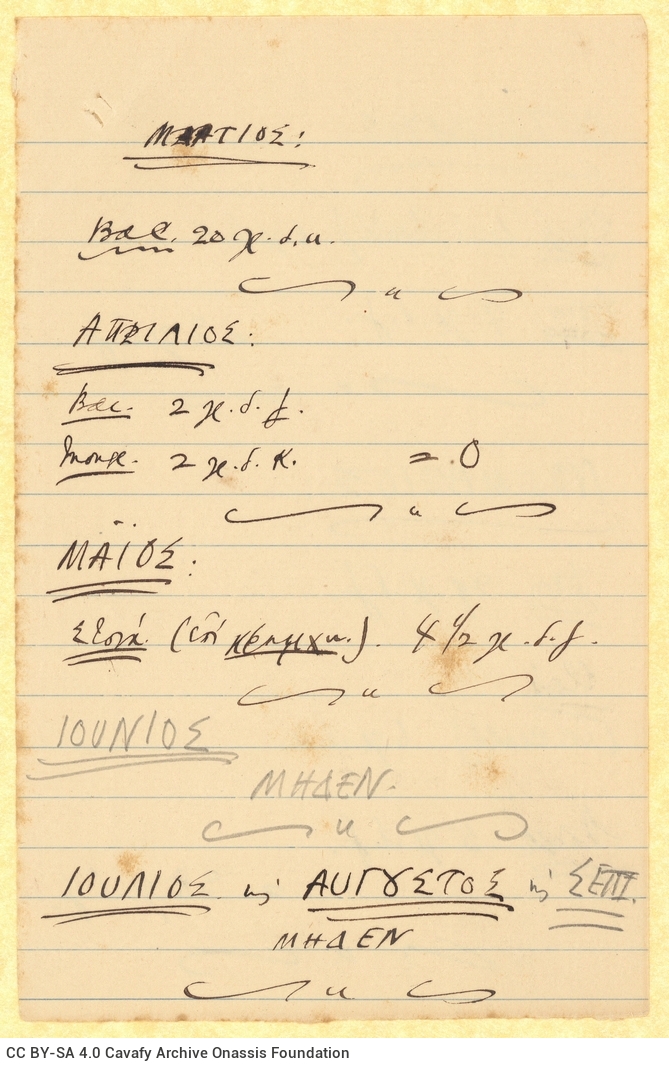 ΜΑΡΤΙΟΣ:
Βας. 20 χ. δ. κ.
ΑΠΡΙΛΙΟΣ:
Βας. 2 χ. δ. f.
2 χ. δ. κ. = 0
ΜΑΪΟΣ:
(επί ). 4 1/2 χ. δ. f.
ΙΟΥΝΙΟΣ
ΜΗΔΕΝ.
ΙΟΥΛΙΟΣ κι ΑΥΓΟΥΣΤΟΣ κι ΣΕΠΤ.
ΜΗΔΕΝ
CC BY-SA 4.0 Cavafy Archive Onassis Foundation